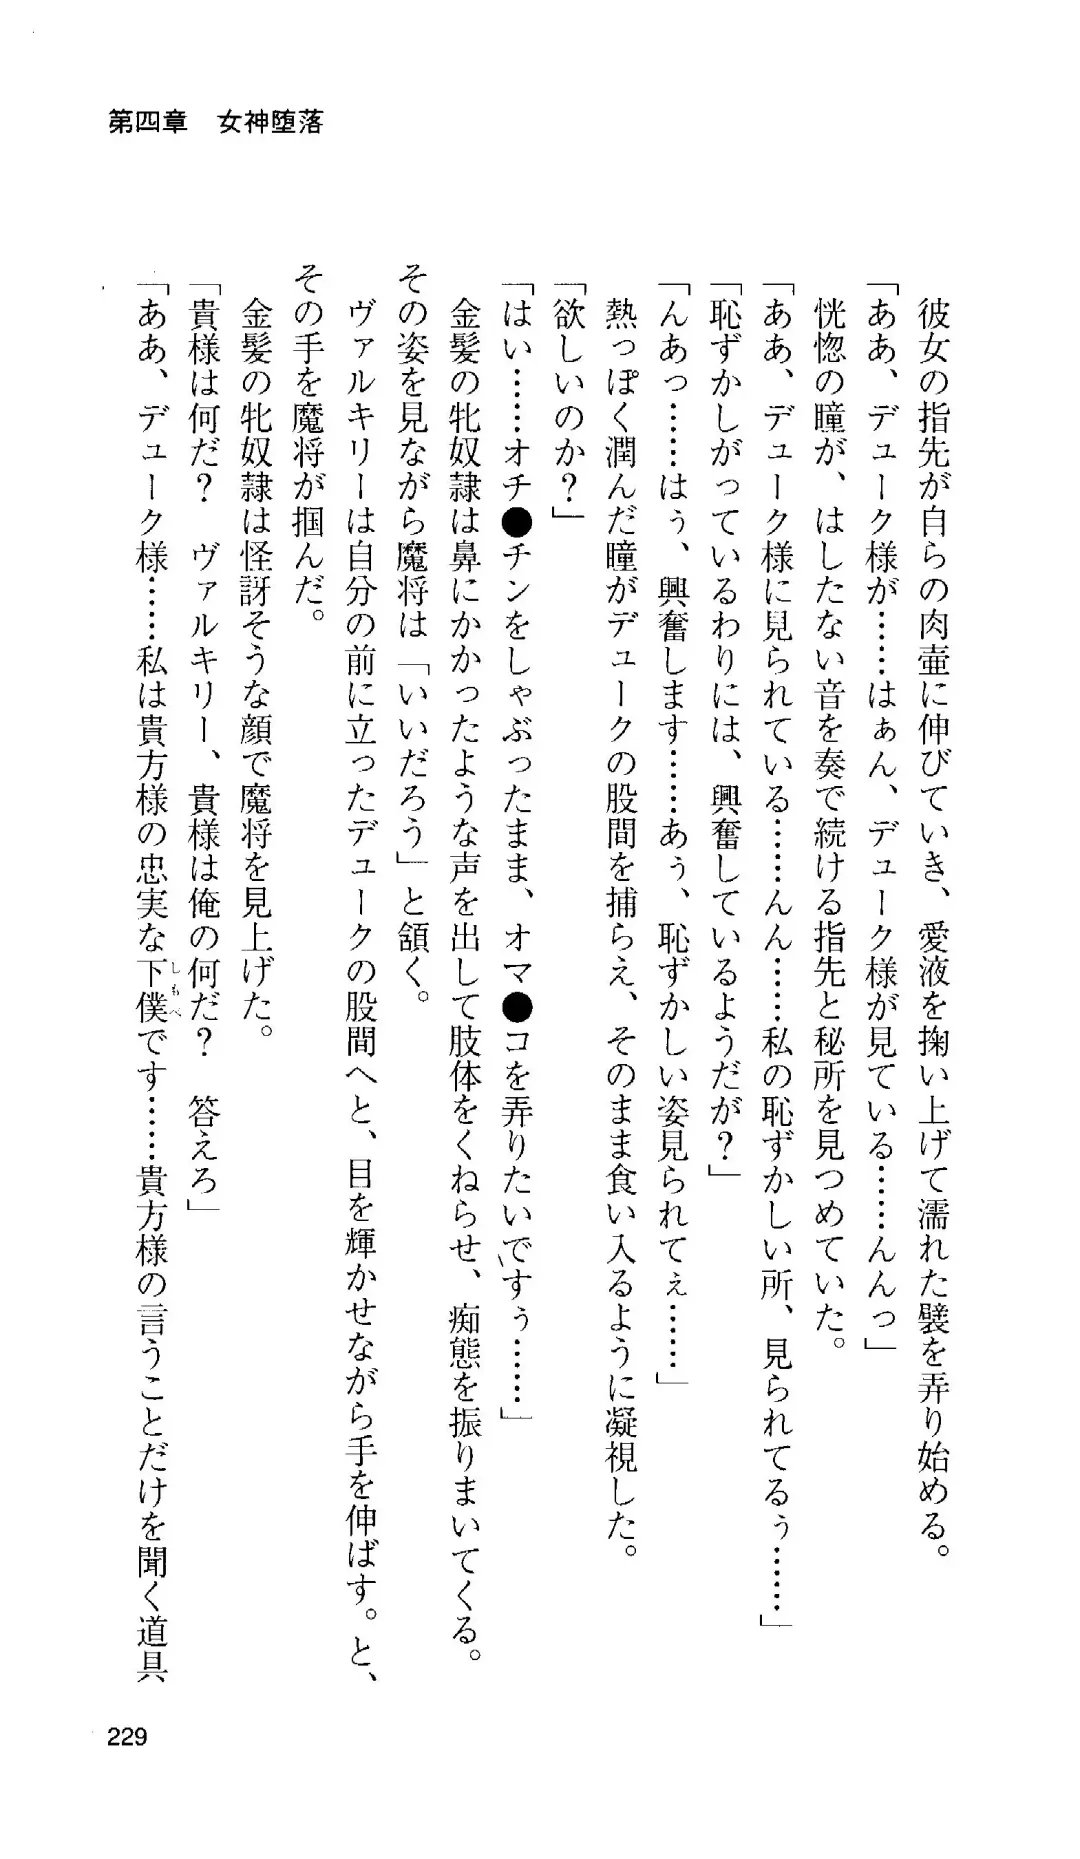 第四章　女神堕落
彼女の指先が自らの肉壷に伸びていき、愛液を掬い上げて濡れた襞を弄り始める。
「ああ、デューク様が……はぁん、デューク様が見ている……んんっ」
恍惚の瞳が、はしたない音を奏で続ける指先と秘所を見つめていた。
「ああ、デューク様に見られている……んん……私の恥ずかしい所、見られてるぅ……」
「恥ずかしがっているわりには、興奮しているようだが？」
「んあっ……はぅ、興奮します……あぅ、恥ずかしい姿見られてぇ……」
熱っぽく潤んだ瞳がデュークの股間を捕らえ、そのまま食い入るように凝視した。
「欲しいのか？」
「はい……オチ●チンをしゃぶったまま、オマ●コを弄りたいですぅ……」
金髪の牝奴隷は鼻にかかったような声を出して肢体をくねらせ、痴態を振りまいてくる。
その姿を見ながら魔将は「いいだろう」と頷く。
ヴァルキリーは自分の前に立ったデュークの股間へと、目を輝かせながら手を伸ばす。と、
その手を魔将が掴んだ。
金髪の牝奴隷は怪訝そうな顔で魔将を見上げた。
「貴様は何だ？　ヴァルキリー、貴様は俺の何だ？　答えろ」
「ああ、デューク様……私は貴方様の忠実な下僕です……貴方様の言うことだけを聞く道具
しもべ
229